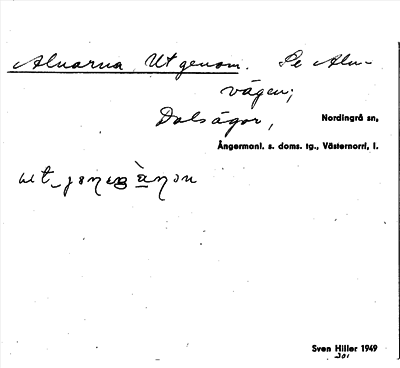 Alnarna, Ut genom. Se Aln-
vägen;
Dalsågor, Nordingrå sn,
Ångermanl. s. doms. tg., Västernorrl, l.
Sven Hiller 1949
301